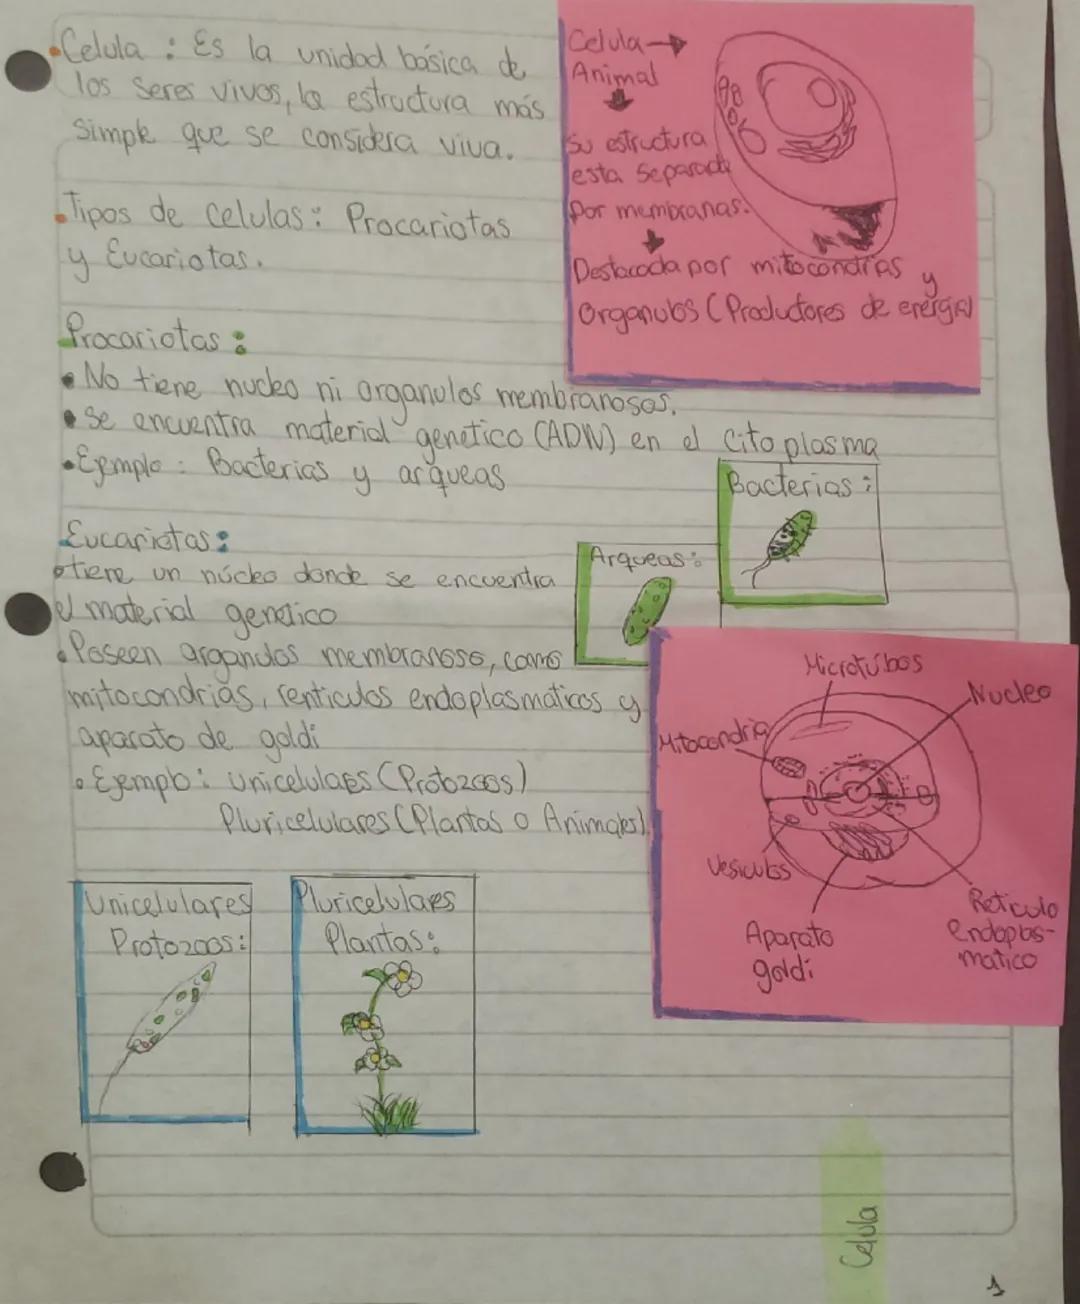 Celula : Es la unidad básica de
los seres vivos, la estructura más
simple que se considera viva.
Tipos de celulas: Procariotas
y Eucariotas.
Celula →
Animal
Su estructura
esta separada
por membranas.
Destacada por mitocondrias y
Organulos (Productores de energia)
Procariotas:
• No tiene nucleo ni organulos membranosos.
• Se encuentra material genetico (ADN) en el Citoplasma
• Ejemplo : Bacterias y arqueas
Bacterias:
Arqueas:
Eucariotas:
• tiene un núcleo donde se encuentra
el material genetico
• Poseen organulos membranoso, como
mitocondrias, renticulos endoplasmaticos y
aparato de goldi
• Ejemplo: Unicelulares (Protozoos)
Pluricelulares (Plantas o Animales).
Microtúbos
Nucleo
Mitocondria
Vesiculas
Aparato
goldi
Reticulo
endoplas-
matico
Unicelulares
Protozoos:
Pluricelulares
Plantas:
Celula
1